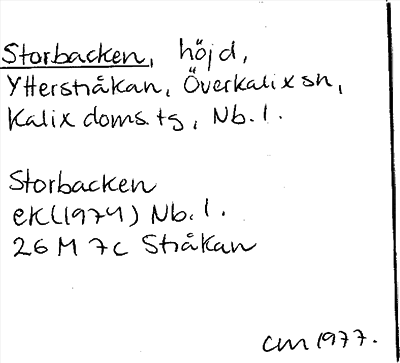 Storbacken, höjd,
Ytterstråkan, Överkalix sn,
Kalix doms.tg, Nb.l.
Storbacken
ek(1974) Nb.l.
26 M 7c Stråkan
CM 1977.